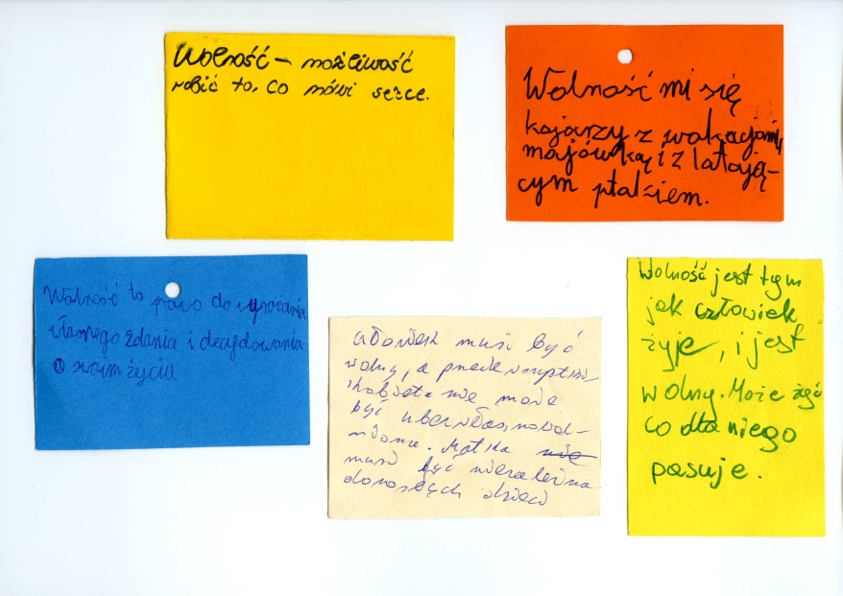 Wolność – możliwość
robić to, co mówi serce.
Wolność mi się
kojarzy z wakacjami,
majówką i z latają-
cym ptakiem.
Wolność to prawo do wyrażania
własnego zdania i decydowania
o swoim życiu
Wolność jest tym
jak człowiek
żyje, i jest
wolny. Może żyć
co dla niego
pasuje.
człowiek musi być
wolny, a przede wszystkim
kobieta nie może
być ubezwłasnowol-
niona. Matka nie
musi być niezależna
dorosłych dzieci